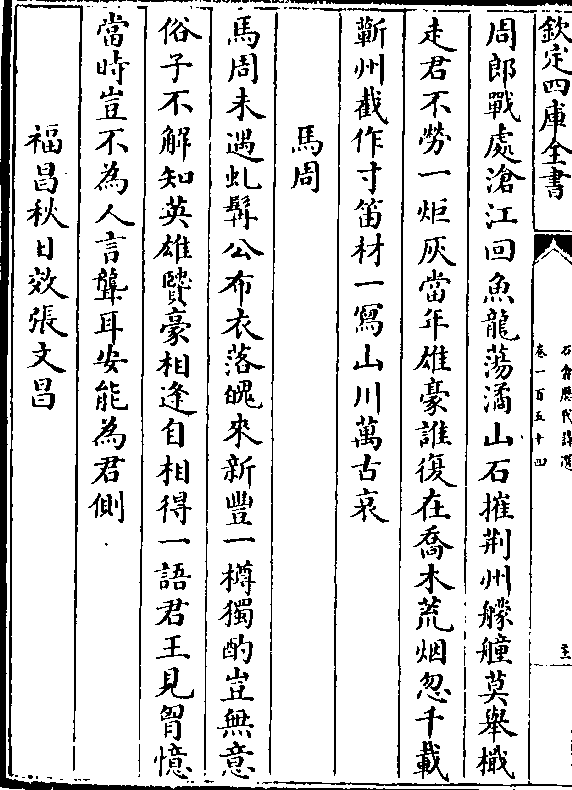 欽定四庫全書
石倉歴代詩選
卷一百五十四
周郎戰處滄江回魚龍蕩潏山石摧荆州艨艟莫舉檝
走君不勞一炬灰當年雄豪誰復在喬木荒烟忽千載
蘄州截作寸笛材一寫山川萬古哀
馬周
馬周未遇虬髯公布衣落魄來新豐一樽獨酌豈無意
俗子不解知英雄賢豪相逢自相得一語君王見胷憶
當時豈不為人言聾耳安能為君側
福昌秋日效張文昌